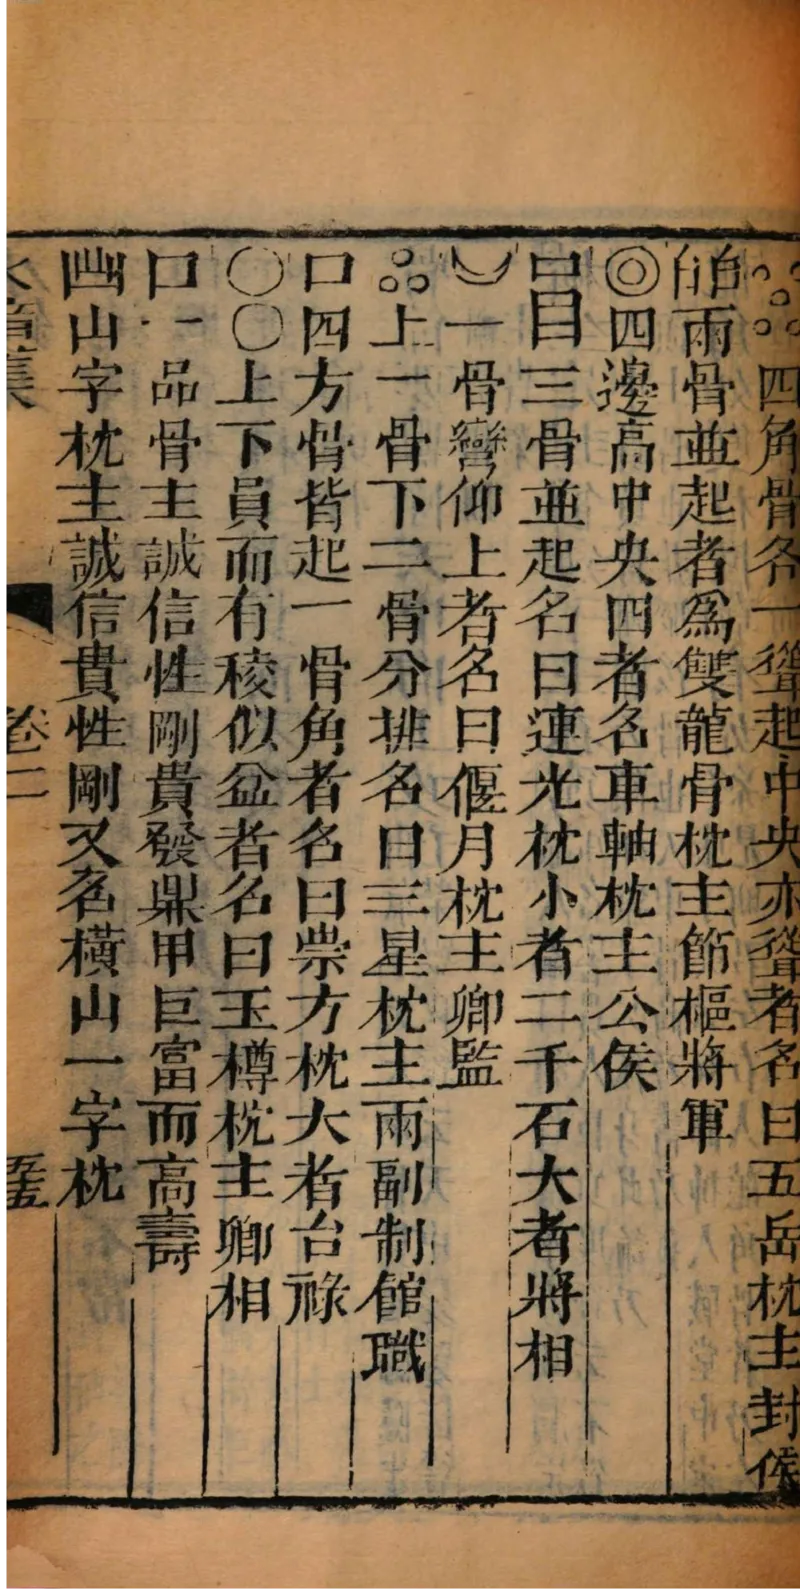 四角骨各一聳起中央亦聳者名曰五岳枕主封侯
兩骨並起者為雙龍骨枕主節樞將軍
◎四邊高中央凹者名車軸枕主公侯
三骨並起名曰連光枕小者二千石大者將相
一骨彎仰上者名曰偃月枕主卿監
上一骨下二骨分排名曰三星枕主兩副制館職
口四方骨皆起一骨角者名曰崇方枕大者台祿
〇〇上下員而有稜似盆者名曰玉樽枕主卿相
口一品骨主誠信性剛貴發鼎甲巨富而高壽
山字枕主誠信貴性剛又名橫山一字枕
水鏡集
卷二
五五